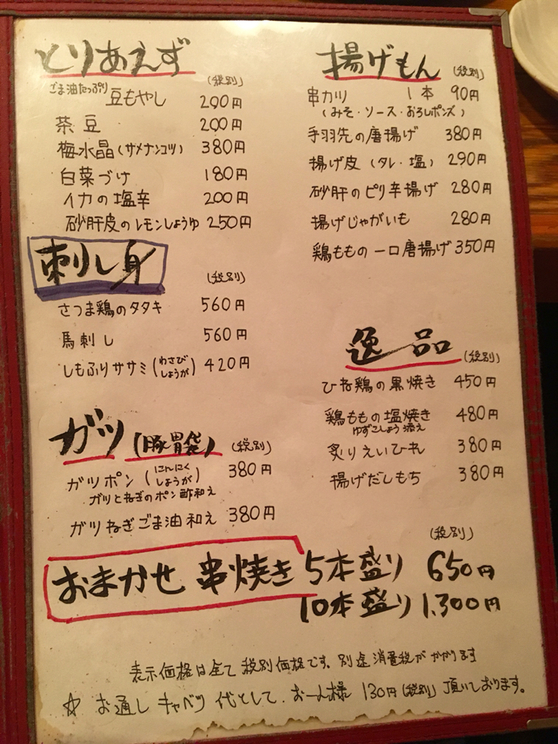 とりあえず (税別)
ごま油たっぷり 豆もやし 290円
茶豆 200円
梅水晶(サメナンコツ) 380円
白菜づけ 180円
イカの塩辛 200円
砂肝皮のレモンしょうゆ 250円
刺し身 (税別)
さつま鶏のタタキ 560円
馬刺し 560円
しもふりササミ(わさび しょうが) 420円
ガツ(豚胃袋) (税別)
ガツポン(にんにく しょうが) 380円
ガツとねぎのポン酢和え
ガツねぎごま油和え 380円
揚げもん (税別)
串カツ 1本 90円
(みそ・ソース・おろしポンズ)
手羽先の唐揚げ 380円
揚げ皮(タレ・塩) 290円
砂肝のピリ辛揚げ 280円
揚げじゃがいも 280円
鶏ももの一口唐揚げ 350円
逸品 (税別)
ひね鶏の黒焼き 450円
鶏ももの塩焼き 480円
ゆずこしょう添え
炙りえいひれ 380円
揚げだしもち 380円
(税別)
おまかせ 串焼き 5本盛り 650円
10本盛り 1,300円
表示価格は全て税別価格です。別途消費税がかかります
☆ お通し キャベツ代として、お一人様 130円(税別)頂いしております。